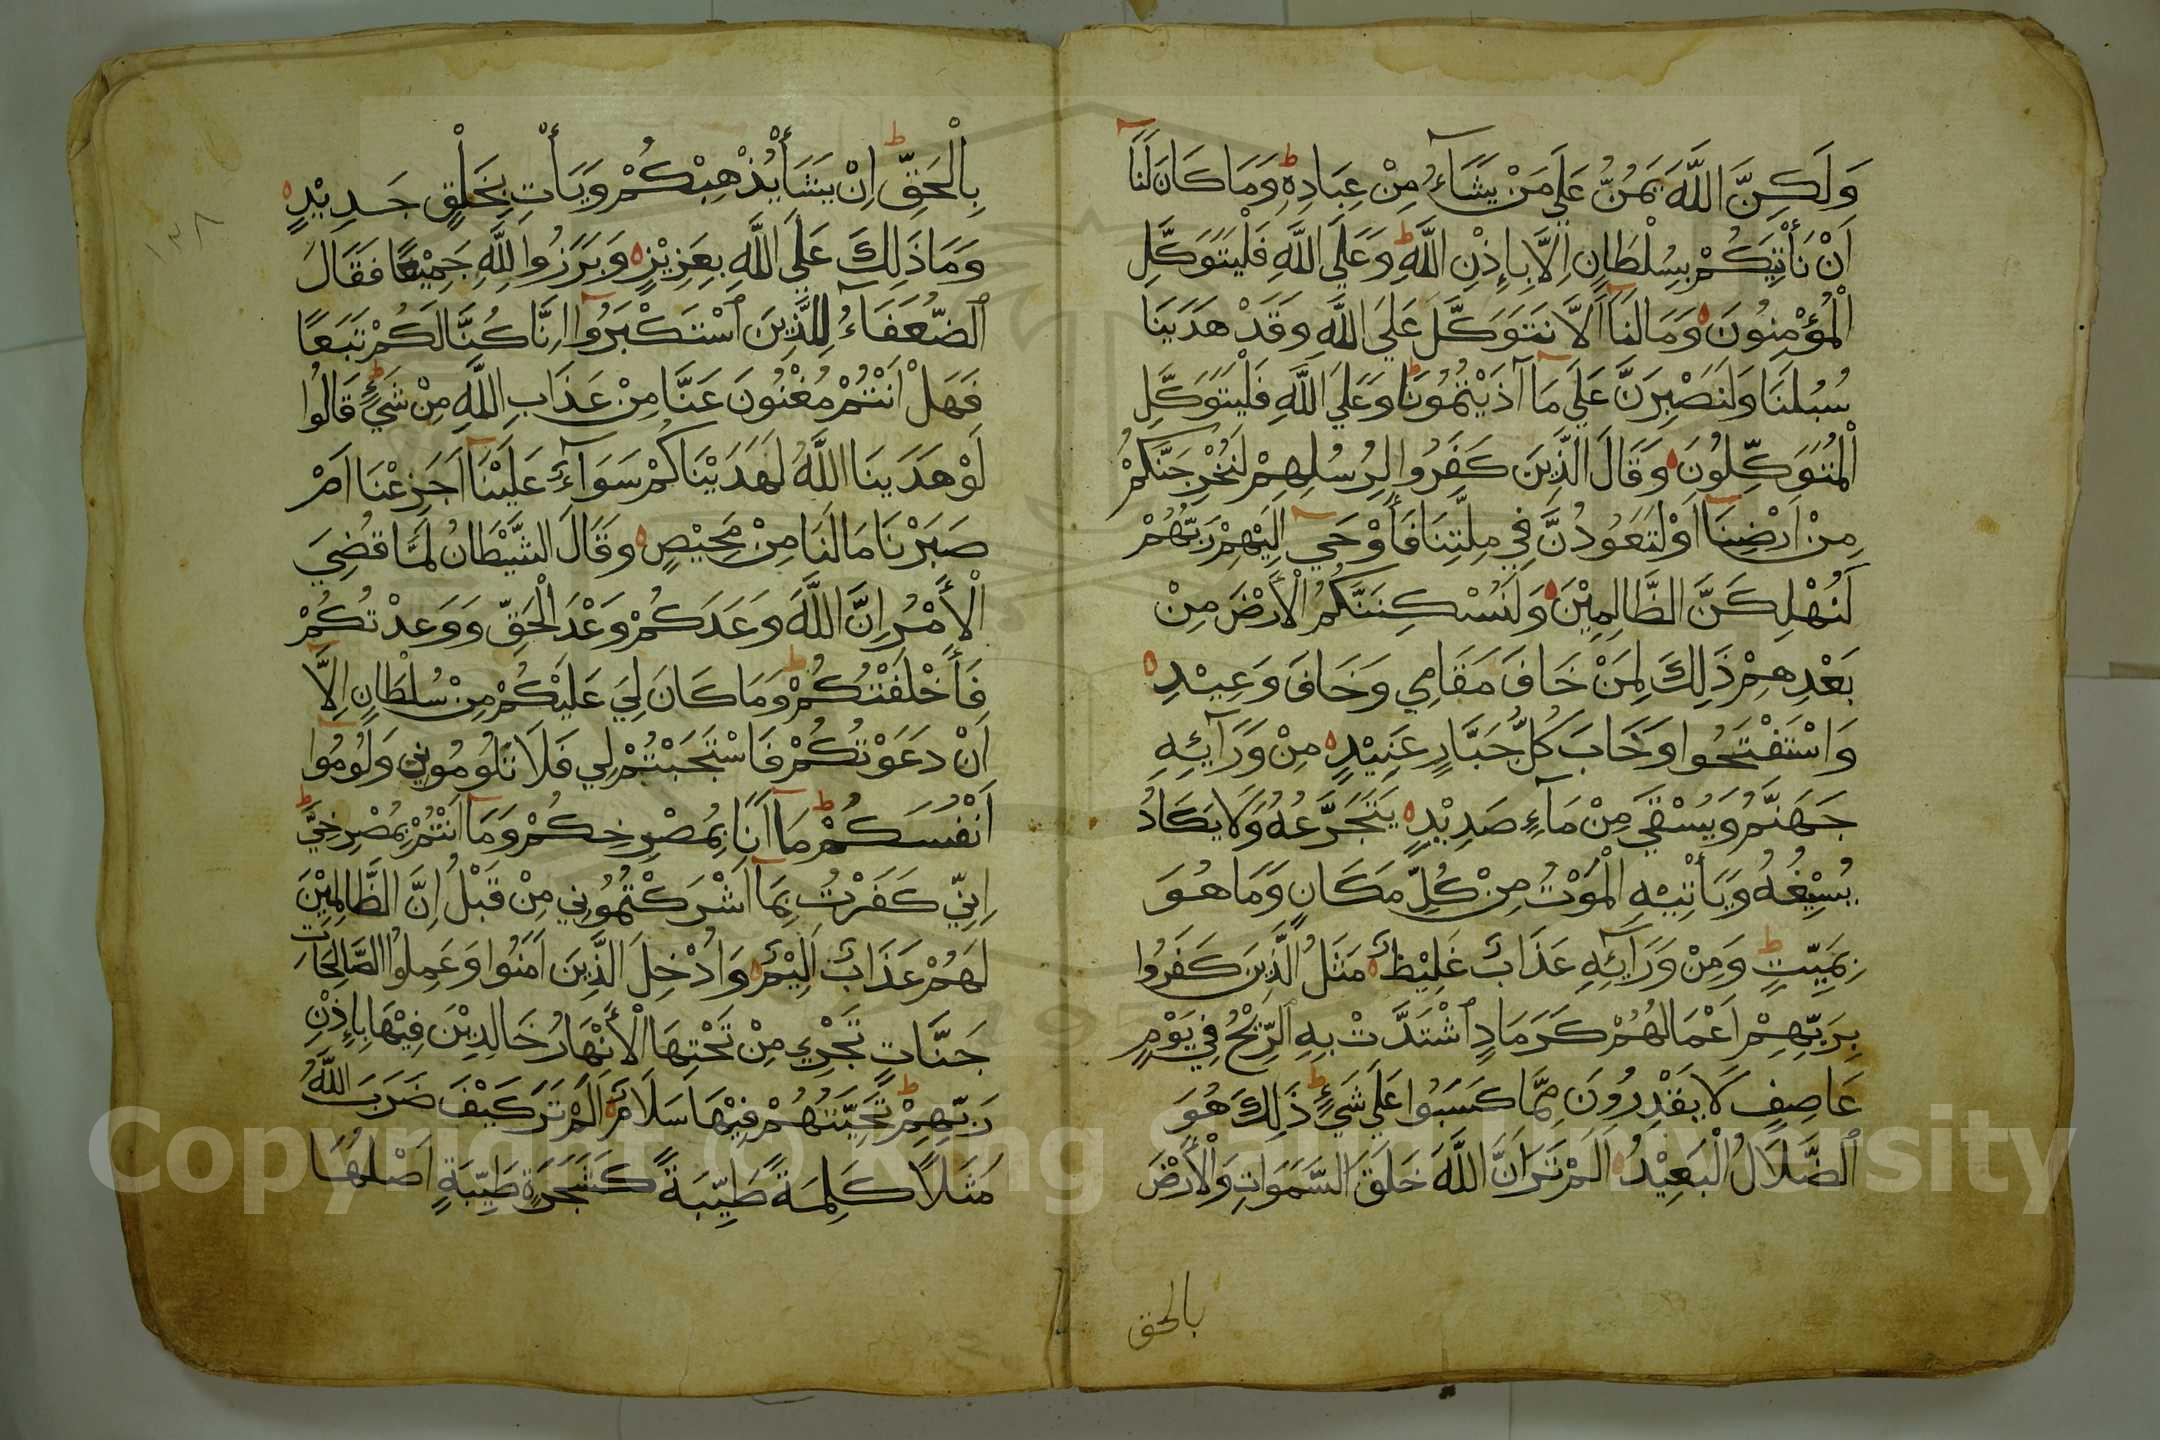 وَلَكِنَّ اللَّهَ يَمُنُّ عَلَي مَنْ يَشَآءُ مِنْ عِبَادِهِ ط وَمَا كَانَ لَنَآ
اَنْ نَأْتِيَكُمْ بِسُلْطَانٍ اِلَّا بِاِذْنِ اللَّهِ ط وَعَلَي اللَّهِ فَلْيَتَوَكَّلِ
الْمُؤْمِنُونَ ه وَمَا لَنَآ اَلَّا نَتَوَكَّلَ عَلَي اللَّهِ وَقَدْ هَدَينَا
سُبُلَنَا وَلَنَصْبِرَنَّ عَلَي مَآ آذَيْتُمُونَا ط وَعَلَي اللَّهِ فَلْيَتَوَكَّلِ
الْمُتَوَكِّلُونَ ه وَقَالَ الَّذِينَ كَفَرُوا لِرُسُلِهِمْ لَنُخْرِجَنَّكُمْ
مِنْ اَرْضِنَآ اَوْ لَتَعُودُنَّ فِي مِلَّتِنَا فَأَوْحَي اِلَيْهِمْ رَبُّهُمْ
لَنُهْلِكَنَّ الظَّالِمِيْنَ ه وَلَنُسْكِنَنَّكُمُ الْأَرْضَ مِنْ
بَعْدِهِمْ ذَلِكَ لِمَنْ خَافَ مَقَامِي وَخَافَ وَعِيْدِ ه
وَاسْتَفْتَحُوا وَخَابَ كُلُّ جَبَّارٍ عَنِيْدٍ ه مِنْ وَرَآئِهِ
جَهَنَّمُ وَيُسْقَي مِنْ مَآءٍ صَدِيْدٍ ه يَتَجَرَّعُهُ وَلَا يَكَادُ
يُسِيْغُهُ وَيَأْتِيْهِ الْمَوْتُ مِنْ كُلِّ مَكَانٍ وَمَا هُوَ
بِمَيِّتٍ ط وَمِنْ وَرَآئِهِ عَذَابٌ غَلِيْظٌ ه مَثَلُ الَّذِينَ كَفَرُوا
بِرَبِّهِمْ اَعْمَالُهُمْ كَرَمَادٍ اشْتَدَّتْ بِهِ الرِّيْحُ فِي يَوْمٍ
عَاصِفٍ لَا يَقْدِرُونَ مِمَّا كَسَبُوا عَلَي شَيْءٍ ط ذَلِكَ هُوَ
الضَّلَالُ الْبَعِيْدُ ه اَلَمْ تَرَ اَنَّ اللَّهَ خَلَقَ السَّمَوَاتِ وَالْأَرْضَ
بالحق
١٣٨
بِالْحَقِّ ط اِنْ يَشَأْ يُذْهِبْكُمْ وَيَأْتِ بِخَلْقٍ جَدِيْدٍ ه
وَمَا ذَلِكَ عَلَي اللَّهِ بِعَزِيْزٍ ه وَبَرَزُوا لِلَّهِ جَمِيْعًا فَقَالَ
الضُّعَفَآءُ لِلَّذِينَ اسْتَكْبَرُوآ اِنَّا كُنَّا لَكُمْ تَبَعًا
فَهَلْ اَنْتُمْ مُغْنُونَ عَنَّا مِنْ عَذَابِ اللَّهِ مِنْ شَيْءٍ ط قَالُوا
لَوْ هَدَينَا اللَّهُ لَهَدَيْنَاكُمْ سَوَآءٌ عَلَيْنَآ اَجَزِعْنَا اَمْ
صَبَرْنَا مَا لَنَا مِنْ مَحِيْصٍ ه وَقَالَ الشَّيْطَانُ لَمَّا قُضِيَ
الْأَمْرُ اِنَّ اللَّهَ وَعَدَكُمْ وَعْدَ الْحَقِّ وَوَعَدْتُكُمْ
فَأَخْلَفْتُكُمْ ط وَمَا كَانَ لِيَ عَلَيْكُمْ مِنْ سُلْطَانٍ اِلَّآ
اَنْ دَعَوْتُكُمْ فَاسْتَجَبْتُمْ لِي فَلَا تَلُومُونِي وَلُومُوآ
اَنْفُسَكُمْ ط مَآ اَنَا بِمُصْرِخِكُمْ وَمَآ اَنْتُمْ بِمُصْرِخِيَّ ط
اِنِّي كَفَرْتُ بِمَآ اَشْرَكْتُمُونِي مِنْ قَبْلُ اِنَّ الظَّالِمِيْنَ
لَهُمْ عَذَابٌ اَلِيْمٌ ه وَاُدْخِلَ الَّذِينَ اَمَنُوا وَعَمِلُوا الصَّالِحَاتِ
جَنَّاتٍ تَجْرِي مِنْ تَحْتِهَا الْأَنْهَارُ خَالِدِيْنَ فِيْهَا بِاِذْنِ
رَبِّهِمْ ط تَحِيَّتُهُمْ فِيْهَا سَلَامٌ ه اَلَمْ تَرَ كَيْفَ ضَرَبَ اللَّهُ
مَثَلًا كَلِمَةً طَيِّبَةً كَشَجَرَةٍ طَيِّبَةٍ اَصْلُهَا
Copyright © King Saud University